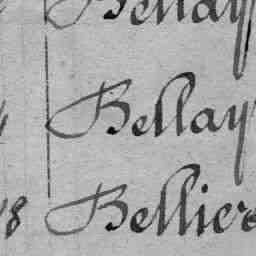 Bellay
Bellay
18 Bellier